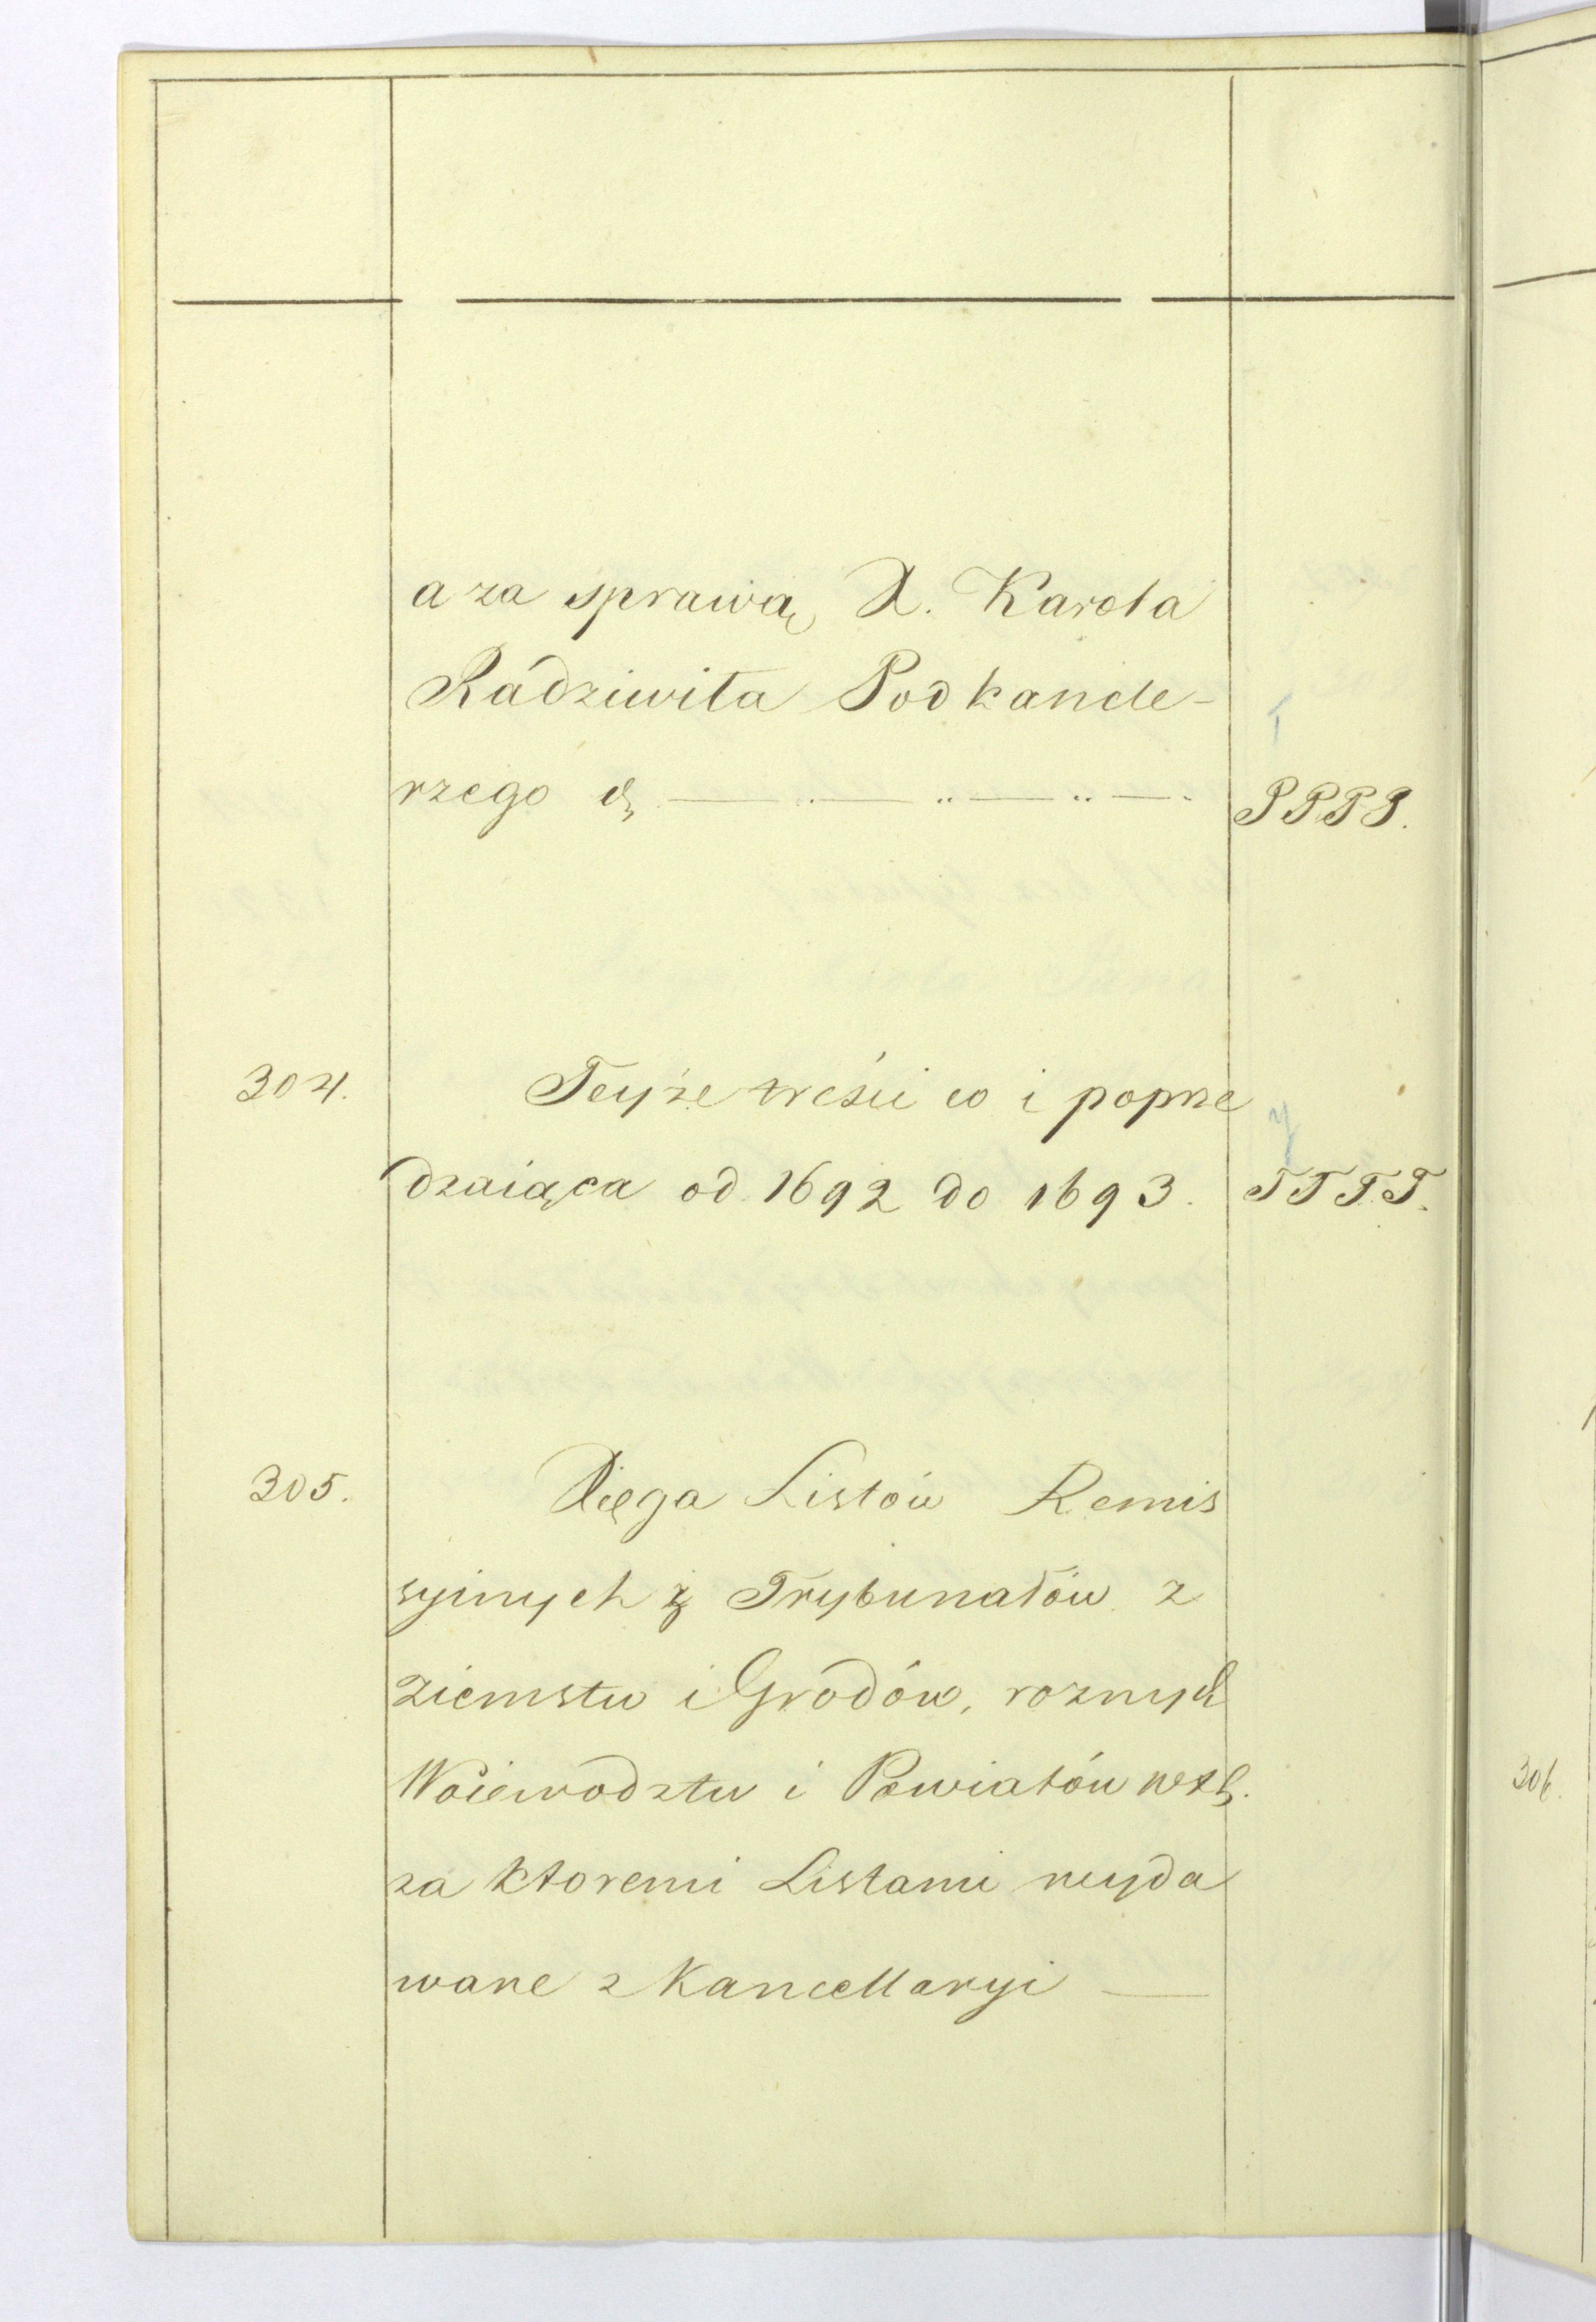 a za sprawą X. Karola
Rádziwiła Podkancle-
rzego
PPPP.
304.
Teyże treści co i poprze
dzaiąca od 1692 do 1693.
TTTT.
305.
Xięga Listów Remis
syinych z Trybunałów z
Ziemstw i Grodów, roznych
Woiewodztw i Powiatów
za ktoremi Listami wyda
wane z Kancellaryi
306.